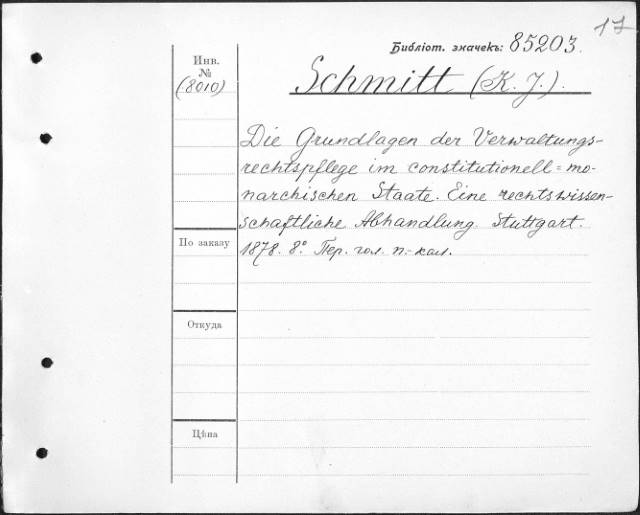 17
Библіот. значекъ: 85203.
Инв.
№
(8010)
Schmitt (K. J.).
Die Grundlagen der Verwaltungs-
rechtspflege im constitutionell=mo-
narchischen Staate. Eine rechtswissen-
schaftliche Abhandlung. Stuttgart.
1878. 8° Пер. гол. п.-кал.
По заказу
Откуда
Цѣна